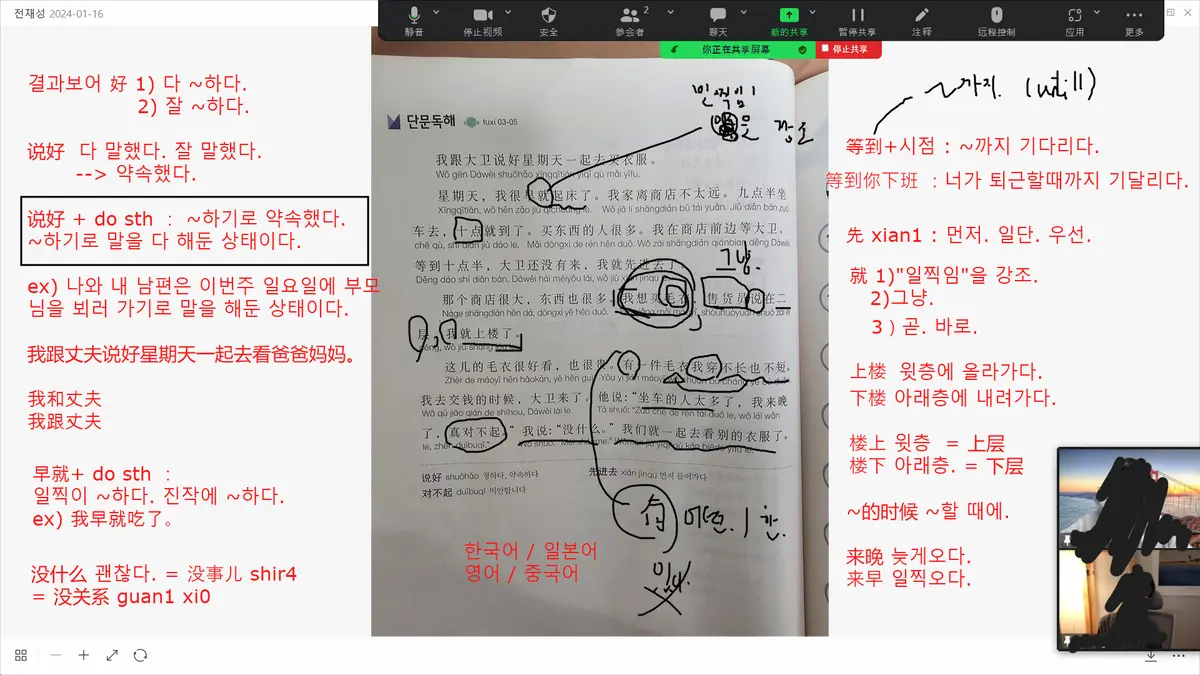 전재성 2024-01-16
静音
停止视频
安全
2
参会者
聊天
新的共享
暂停共享
注释
远程控制
应用
更多
你正在共享屏幕
停止共享
결과보어 好 1) 다 ~하다.
2) 잘 ~하다.
说好 다 말했다. 잘 말했다.
--> 약속했다.
说好 + do sth : ~하기로 약속했다.
~하기로 말을 다 해둔 상태이다.
ex) 나와 내 남편은 이번주 일요일에 부모
님을 뵈러 가기로 말을 해둔 상태이다.
我跟丈夫说好星期天一起去看爸爸妈妈。
我和丈夫
我跟丈夫
早就+ do sth :
일찍이 ~하다. 진작에 ~하다.
ex) 我早就吃了。
没什么 괜찮다. = 没事儿 shir4
= 没关系 guan1 xi0
단문독해 fuxi 03-05
我跟大卫说好星期天一起去买衣服。
Wǒ gēn Dàwèi shuōhǎo xīngqītiān yìqǐ qù mǎi yīfu.
星期天，我很早就起床了。我家离商店不太远。九点半坐
Xīngqītiān, wǒ hěn zǎo jiù qǐchuáng le. Wǒ jiā lí shāngdiàn bú tài yuǎn. Jiǔ diǎn bàn zuò
车去，十点就到了。买东西的人很多。我在商店前边等大卫。
chē qù, shí diǎn jiù dào le. Mǎi dōngxi de rén hěn duō. Wǒ zài shāngdiàn qiánbian děng Dàwèi.
等到十点半，大卫还没有来，我就先进去了。
Děng dào shí diǎn bàn, Dàwèi hái méiyǒu lái, wǒ jiù xiān jìnqu le.
那个商店很大，东西也很多。我想买毛衣，售货员说在二
Nàge shāngdiàn hěn dà, dōngxi yě hěn duō.
层，我就上楼了。
这儿的毛衣很好看，也很贵。有一件毛衣我穿不长也不短。
Zhèr de máoyī hěn hǎokàn, yě hěn guì.
我去交钱的时候，大卫来了。他说：“坐车的人太多了，我来晚
Wǒ qù jiāo qián de shíhou, Dàwèi lái le. Tā shuō: “Zuò chē de rén tài duō le, wǒ lái wǎn
了，真对不起。”我说：“没什么。”我们就一起去看别的衣服了。
说好 shuōhǎo 정하다, 약속하다 先进去 xiān jìnqu 먼저 들어가다
对不起 duìbuqǐ 미안합니다
한국어 / 일본어
영어 / 중국어
강조
그냥.
어떤. 1 한.
~까지. (until)
等到+시점 : ~까지 기다리다.
等到你下班 : 너가 퇴근할때까지 기달리다.
先 xian1 : 먼저. 일단. 우선.
就 1)"일찍임"을 강조.
2)그냥.
3) 곧. 바로.
上楼 윗층에 올라가다.
下楼 아래층에 내려가다.
楼上 윗층 = 上层
楼下 아래층. = 下层
~的时候 ~할 때에.
来晚 늦게오다.
来早 일찍오다.